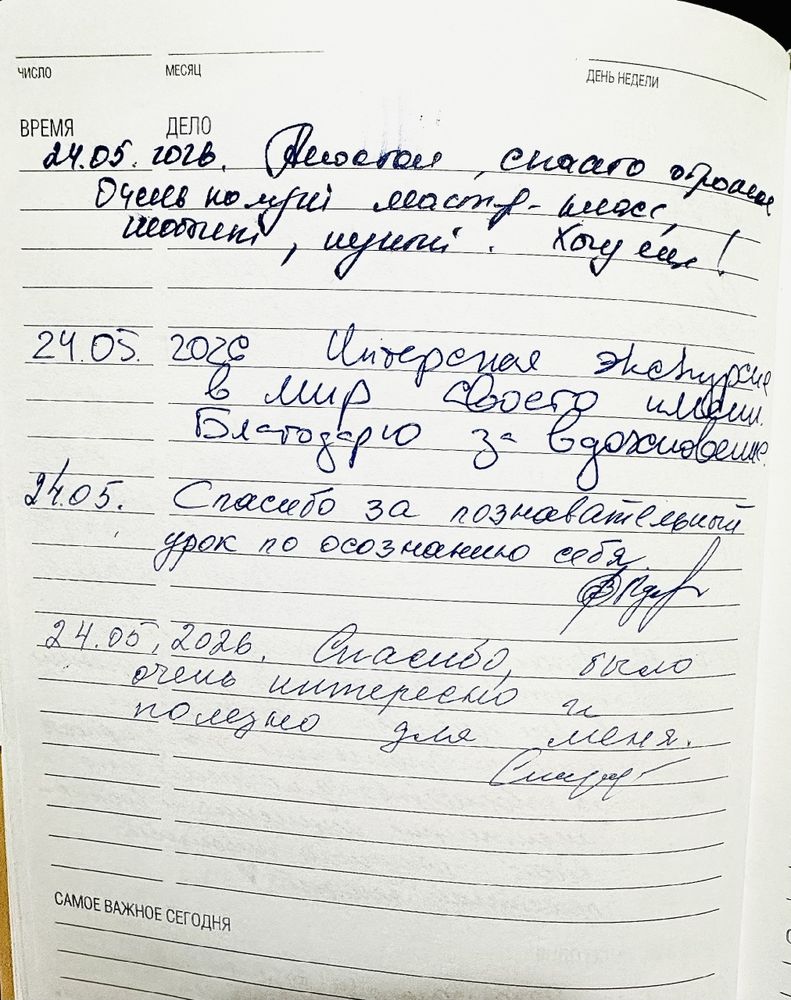 ЧИСЛО МЕСЯЦ ДЕНЬ НЕДЕЛИ
ВРЕМЯ ДЕЛО
24.05.2026. спасибо огромное
Очень нужный мастер-класс,
нужный. Хочу еще!
24.05. 2026 Интересная экскурсия
в мир своего имени.
Благодарю за вдохновение.
24.05. Спасибо за познавательный
урок по осознанию себя.
24.05.2026. Спасибо, было
очень интересно и
полезно для меня.
САМОЕ ВАЖНОЕ СЕГОДНЯ